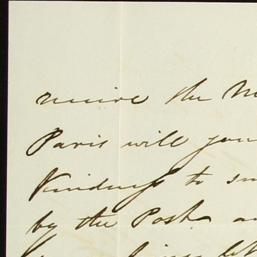 receive the M
Paris will you
Kindness to se
by the Post a